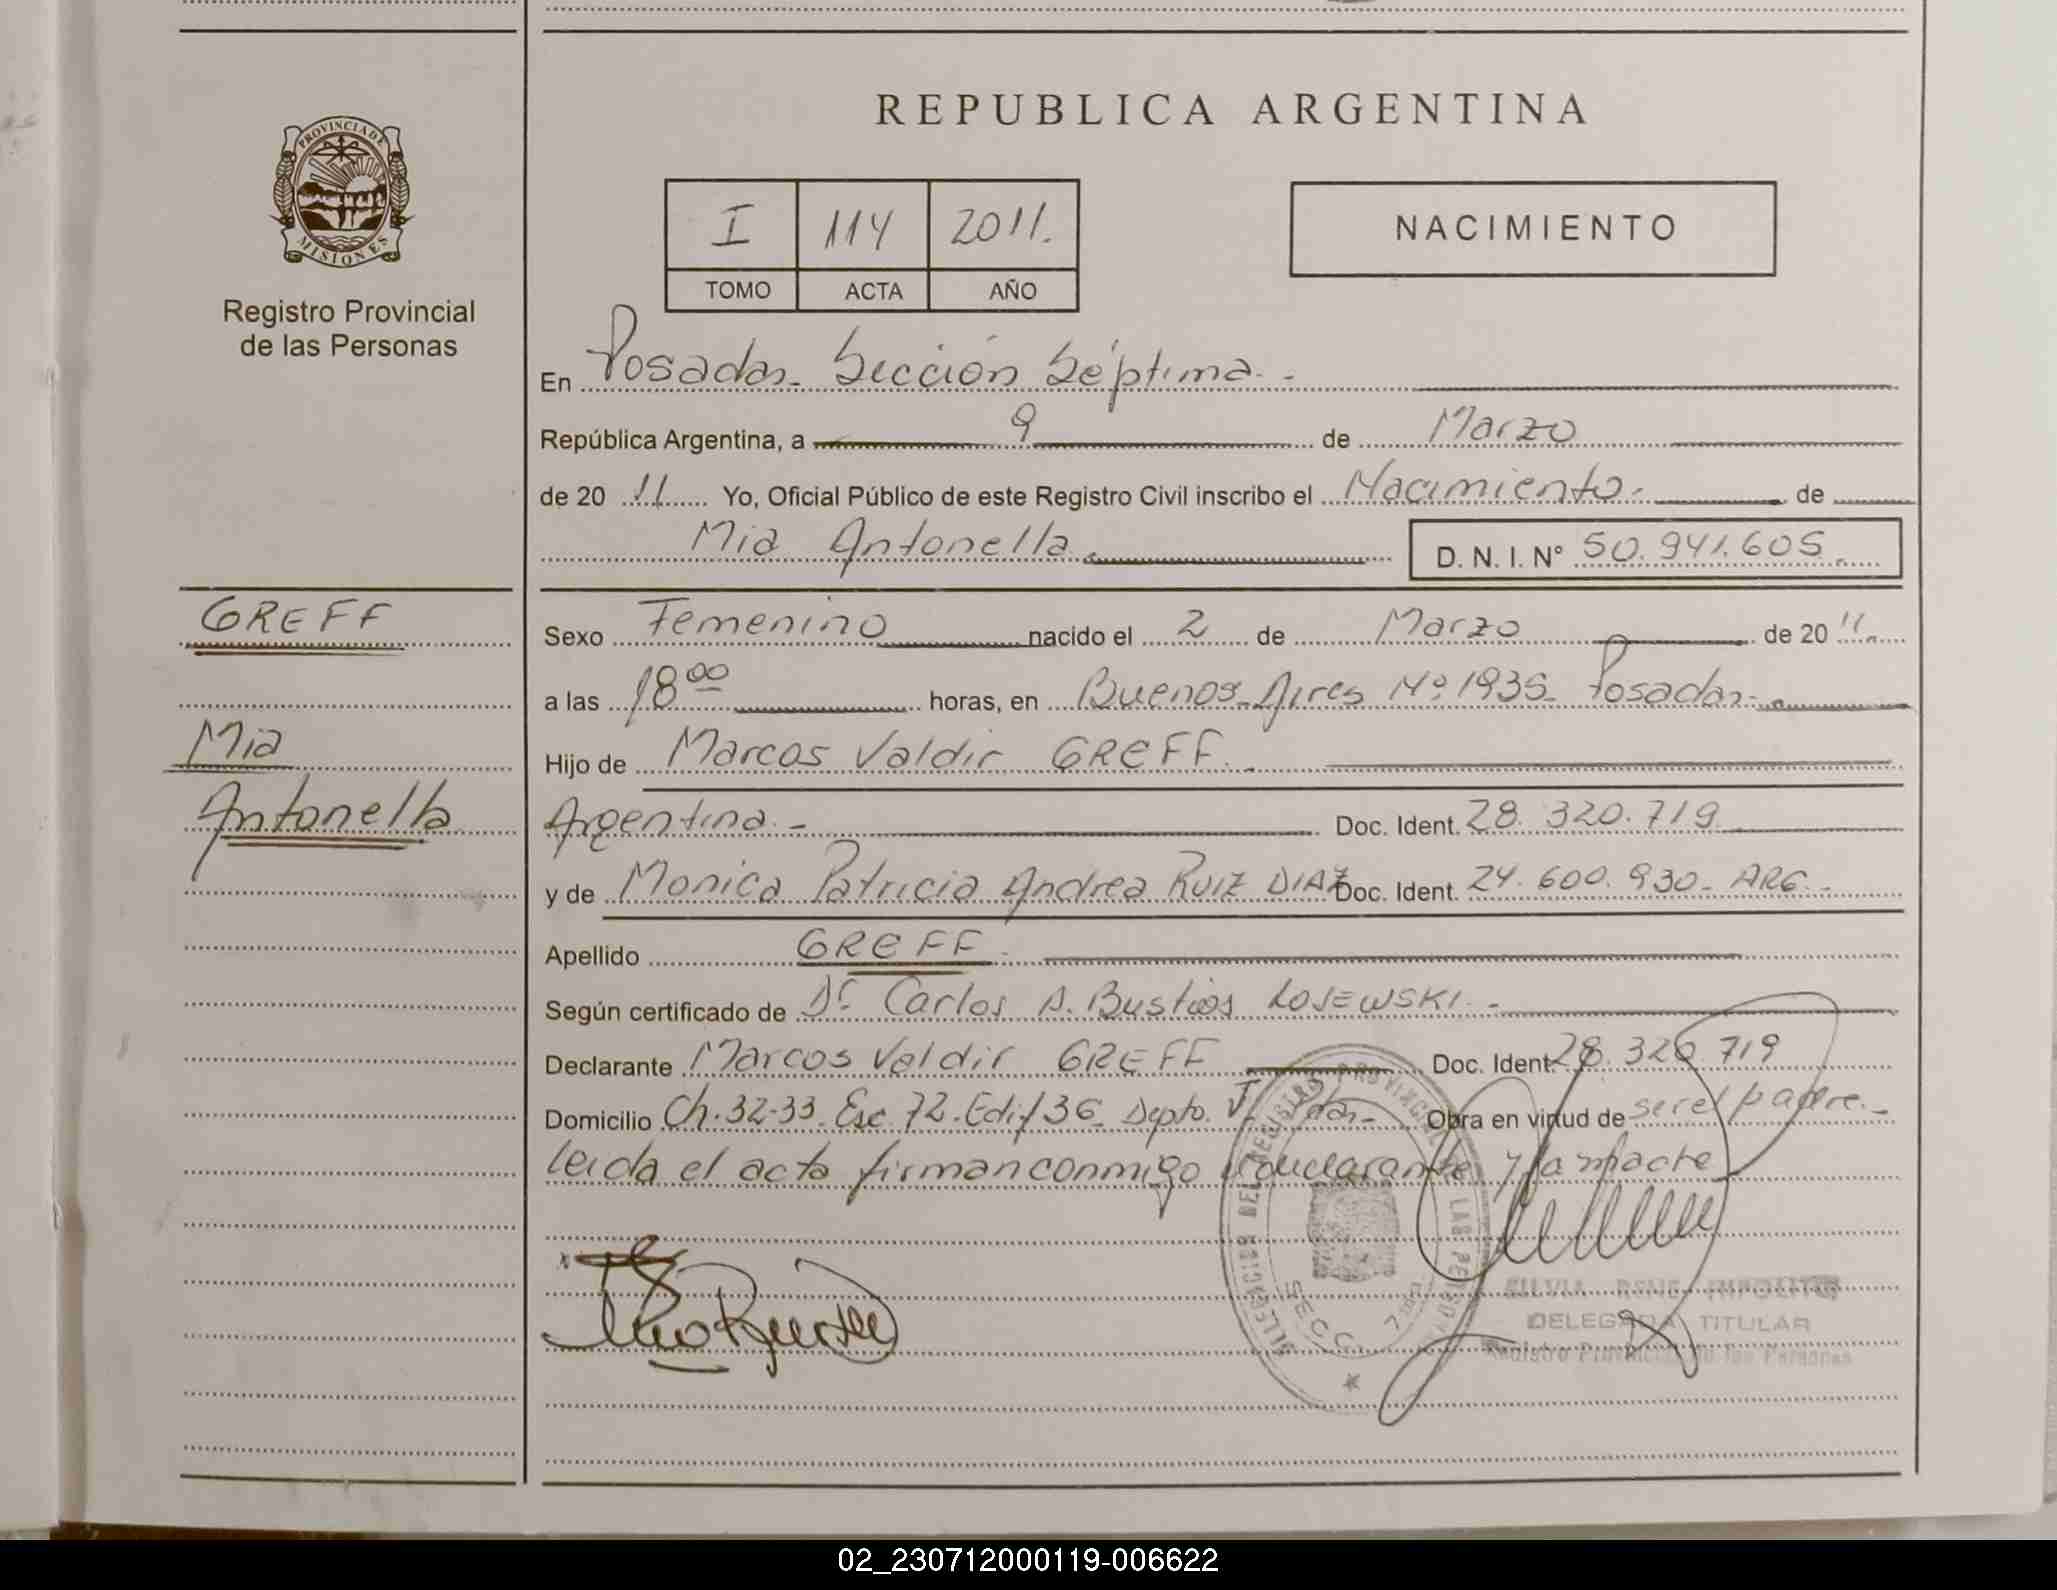 REPUBLICA ARGENTINA
PROVINCIA DE
MISIONES
Registro Provincial
de las Personas
I 114 2011.
TOMO ACTA AÑO
NACIMIENTO
En Posadas Sección Séptima.-
República Argentina, a 9 de Marzo
de 20 11 Yo, Oficial Público de este Registro Civil inscribo el Nacimiento- de
Mia Antonella. D. N. I. N° 50.941.605
GREFF
Mia
Antonella
Sexo Femenino nacido el 2 de Marzo de 20 11.
a las 18 00 horas, en Buenos Aires Nº 1935- Posadas-
Hijo de Marcos Valdir GREFF.
Argentina.- Doc. Ident. 28. 320. 719
y de Monica Patricia Andrea RUIZ DIAZ Doc. Ident. 24. 600. 930- ARG.-
Apellido GREFF.
Según certificado de Dr. Carlos A. Bustios LOJEWSKI.-
Declarante Marcos Valdir GREFF Doc. Ident. 28. 320. 719
Domicilio Ch. 32-33. Esc. 72. Edif 36- Depto. Obra en virtud de ser el padre.-
leida el acta firman conmigo declarante y la madre
DELEGACION DEL REGISTRO PROVINCIAL DE LAS
SECC. 7
SILVIA
DELEGADA TITULAR
Registro Provincial de las Personas
02_230712000119-006622